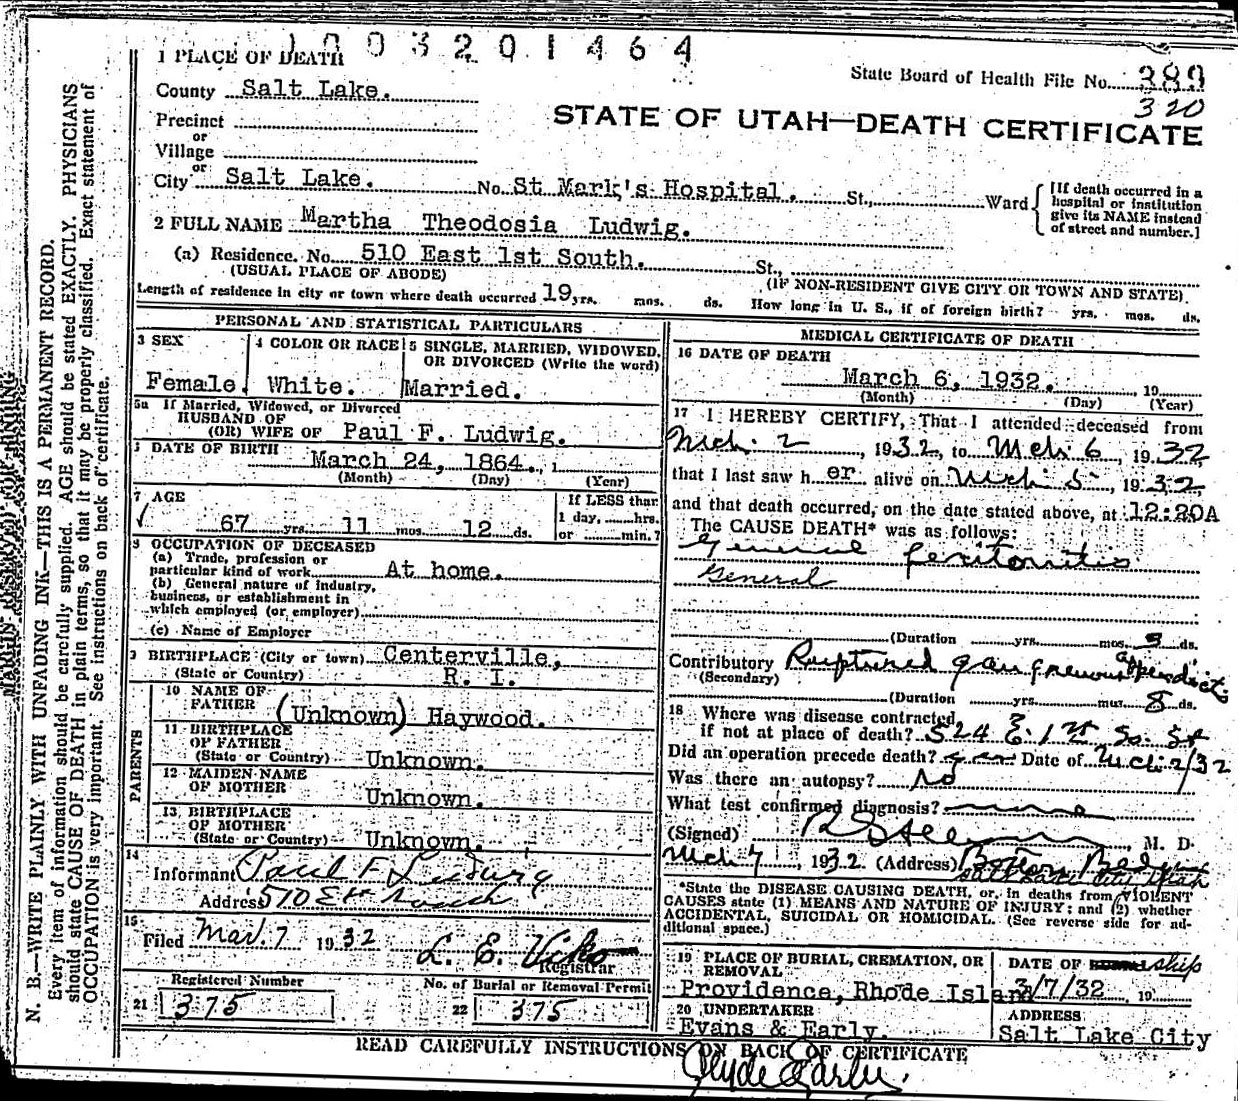 1003201464
1 PLACE OF DEATH
State Board of Health File No. 389
County Salt Lake.
320
STATE OF UTAH—DEATH CERTIFICATE
Precinct
or
Village
or
City Salt Lake. No. St Mark's Hospital. St., Ward
[If death occurred in a
hospital or institution
give its NAME instead
of street and number.]
2 FULL NAME Martha Theodosia Ludwig.
(a) Residence. No. 510 East 1st South. St.,
(USUAL PLACE OF ABODE) (IF NON-RESIDENT GIVE CITY OR TOWN AND STATE)
Length of residence in city or town where death occurred 19 yrs. mos. ds. How long in U. S., if of foreign birth? yrs. mos. ds.
PERSONAL AND STATISTICAL PARTICULARS
3 SEX
Female.
4 COLOR OR RACE
White.
5 SINGLE, MARRIED, WIDOWED,
OR DIVORCED (Write the word)
Married.
5a If Married, Widowed, or Divorced
HUSBAND OF
(OR) WIFE OF Paul F. Ludwig.
DATE OF BIRTH March 24, 1864., 1
(Month) (Day) (Year)
7 AGE
67 yrs. 11 mos. 12 ds.
If LESS than
1 day, hrs.
or min.?
8 OCCUPATION OF DECEASED
(a) Trade, profession or
particular kind of work At home.
(b) General nature of industry,
business, or establishment in
which employed (or employer)
(c) Name of Employer
9 BIRTHPLACE (City or town) Centerville,
(State or Country) R. I.
PARENTS
10 NAME OF
FATHER (Unknown) Haywood.
11 BIRTHPLACE
OF FATHER
(State or Country) Unknown.
12 MAIDEN NAME
OF MOTHER Unknown.
13 BIRTHPLACE
OF MOTHER
(State or Country) Unknown.
14
Informant Paul F Ludwig
Address 510 E 1st South
15
Filed Mar. 7 1932 L. E. Viko
Registrar
Registered Number
21 375
No. of Burial or Removal Permit
22 375
MEDICAL CERTIFICATE OF DEATH
16 DATE OF DEATH
March 6, 1932. 19
(Month) (Day) (Year)
17 I HEREBY CERTIFY, That I attended deceased from
Mch. 2, 1932, to Mch 6, 1932,
that I last saw her alive on Mch 5, 1932,
and that death occurred, on the date stated above, at 12:20A
The CAUSE DEATH* was as follows:
General peritonitis
General
(Duration yrs. mos. 3 ds.
Contributory Ruptured gangrenous appendicitis
(Secondary)
(Duration yrs. mos. 8 ds.
18 Where was disease contracted
if not at place of death? 524 E. 1st So. St
Did an operation precede death? yes Date of Mch 2/32
Was there an autopsy? No
What test confirmed diagnosis?
(Signed) M. D.
Mch 7 1932 (Address) Boston Bldg
Salt Lake City Utah
*State the DISEASE CAUSING DEATH, or, in deaths from VIOLENT
CAUSES state (1) MEANS AND NATURE OF INJURY; and (2) whether
ACCIDENTAL, SUICIDAL OR HOMICIDAL. (See reverse side for ad-
ditional space.)
19 PLACE OF BURIAL, CREMATION, OR
REMOVAL
Providence, Rhode Island
DATE OF BURIAL ship
3/7/32, 19
20 UNDERTAKER
Evans & Early.
ADDRESS
Salt Lake City
READ CAREFULLY INSTRUCTIONS ON BACK OF CERTIFICATE
Clyde Early.
MARGIN RESERVED FOR BINDING
N. B.—WRITE PLAINLY WITH UNFADING INK—THIS IS A PERMANENT RECORD.
Every item of information should be carefully supplied. AGE should be stated EXACTLY. PHYSICIANS
should state CAUSE OF DEATH in plain terms, so that it may be properly classified. Exact statement of
OCCUPATION is very important. See instructions on back of certificate.